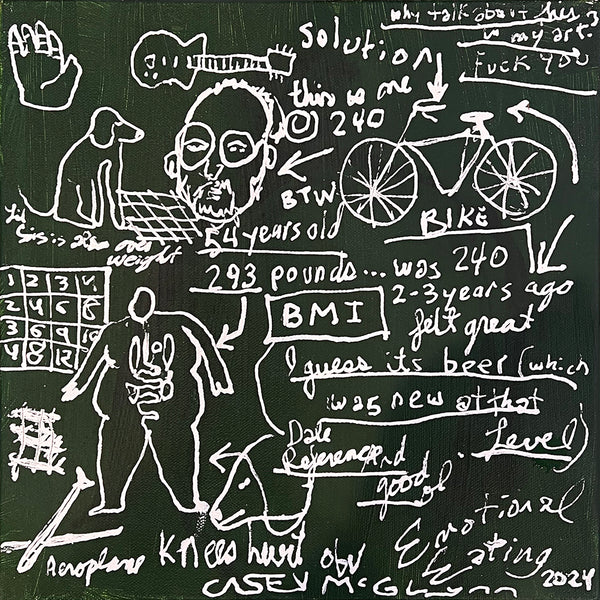 why talk about this?
is my art.
Fuck you
Solution
this is me
@ 240
BTW
BIKE
Sis is also over
weight
54 years old
293 pounds... was 240
2-3 years ago
felt great
BMI
I guess its beer (which
was new at that
Level)
Date
Reference
And
good ol'
Emotional
Eating
1 2 3 4
2 4 6 8
3 6 9 12
4 8 12
Aeroplane
Knees hurt obv
CASEY McGlynn
2024